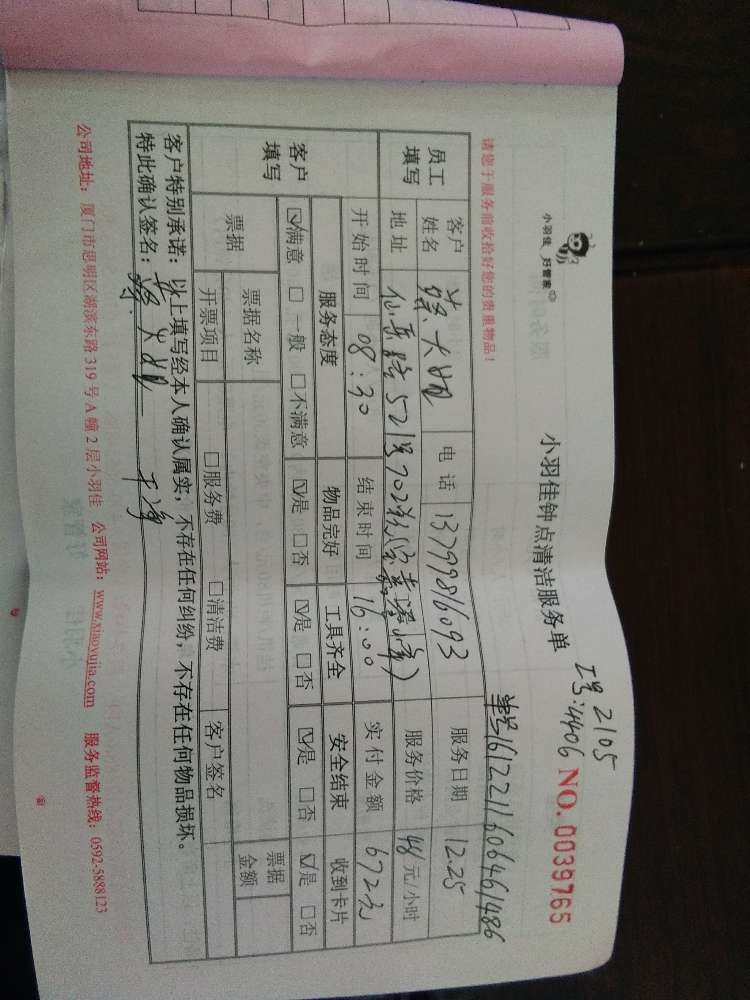 小羽佳 好管家
小羽佳钟点清洁服务单
工号:4406 2105
NO.0039765
请您于服务前收拾好您的贵重物品！
单号1612211606461486
员工填写
客户姓名
电话 13799816093
服务日期 12.25
地址 仙乐路521号702
服务价格 48元/小时
开始时间 08:30
结束时间 16:00
实付金额 672元
客户填写
服务态度 物品完好 工具齐全 安全结束 收到卡片
☑满意 □一般 □不满意 ☑是 □否 ☑是 □否 ☑是 □否 ☑是 □否
票据
票据名称
票据金额
开票项目 □服务费 □清洁费 客户签名
客户特别承诺：以上填写经本人确认属实，不存在任何纠纷，不存在任何物品损坏。
特此确认签名：
公司地址：厦门市思明区湖滨东路319号A幢2层小羽佳 公司网站：www.xiaoyujia.com 服务监督热线：0592-5888123